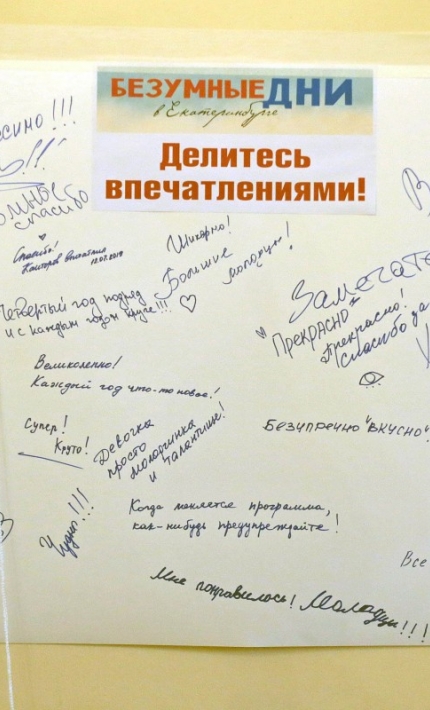 БЕЗУМНЫЕ ДНИ
в Екатеринбурге
Делитесь
впечатлениями!
спасибо
Спасибо!
12.07.2019
Шикарно!
Большие
молодцы!
Четвертый год подряд
и с каждым годом круче!!!
Замечате
ПРЕКРАСНО
Прекрасно!
Спасибо за
Великолепно!
Каждый год что-то новое!
Супер!
Круто!
Девочка
просто
молодчинка
и талантище!
БЕЗУПРЕЧНО "ВКУСНО"
Чудно!!!
Когда меняется программа,
как-нибудь предупреждайте!
Все
Мне понравилось! Молодцы!!!